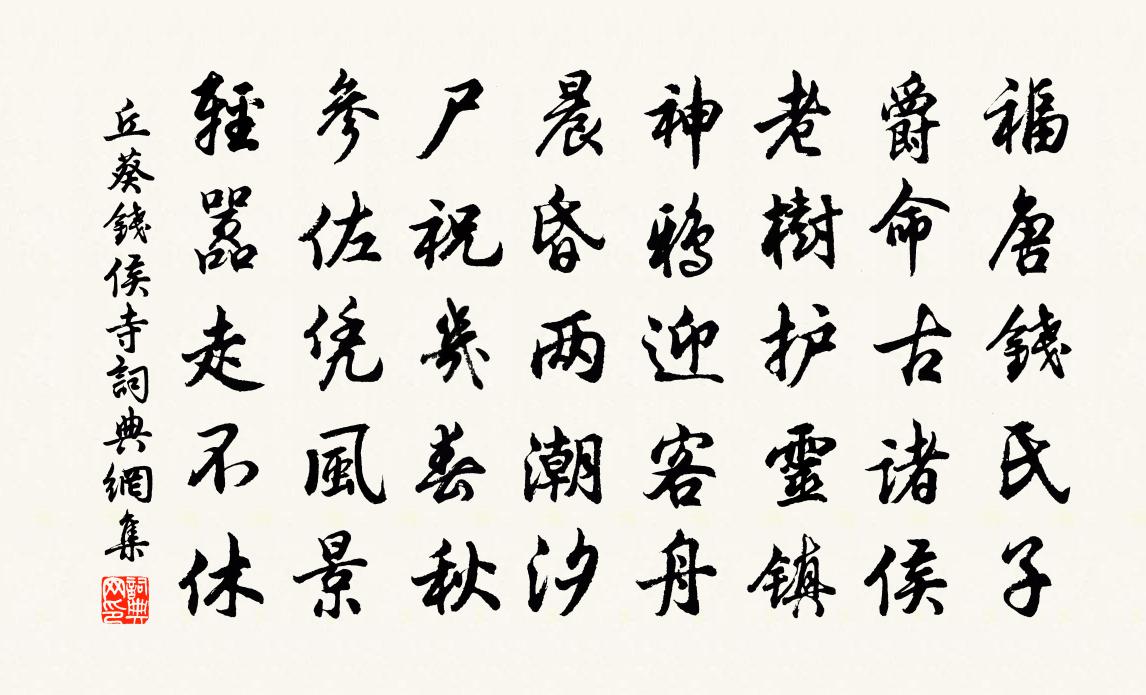 福唐錢氏子
爵命古诸侯
老樹护靈鎮
神鸦迎客舟
晨昏两潮汐
尸祝幾春秋
參佐凭風景
輕嚣走不休
丘葵錢侯寺詞典網集
詞典網印